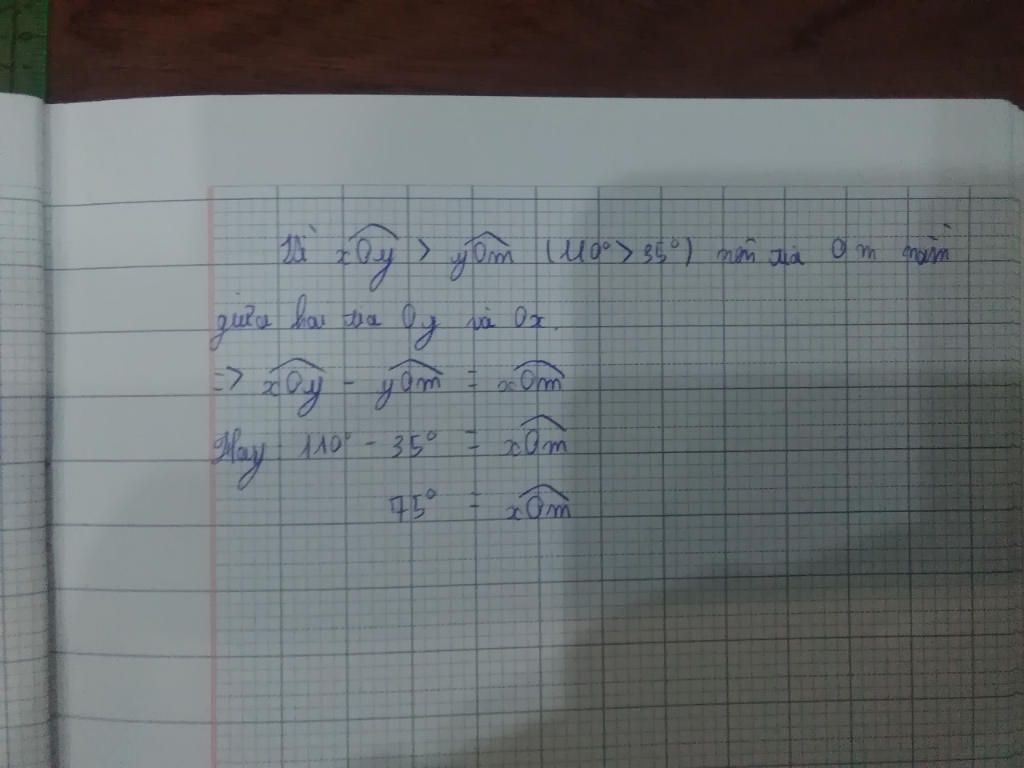 Vì xOy > yOm (110° > 35°) nên tia Om nằm
giữa hai tia Oy và Ox.
=> xOy - yOm = xOm
Hay 110° - 35° = xOm
75° = xOm